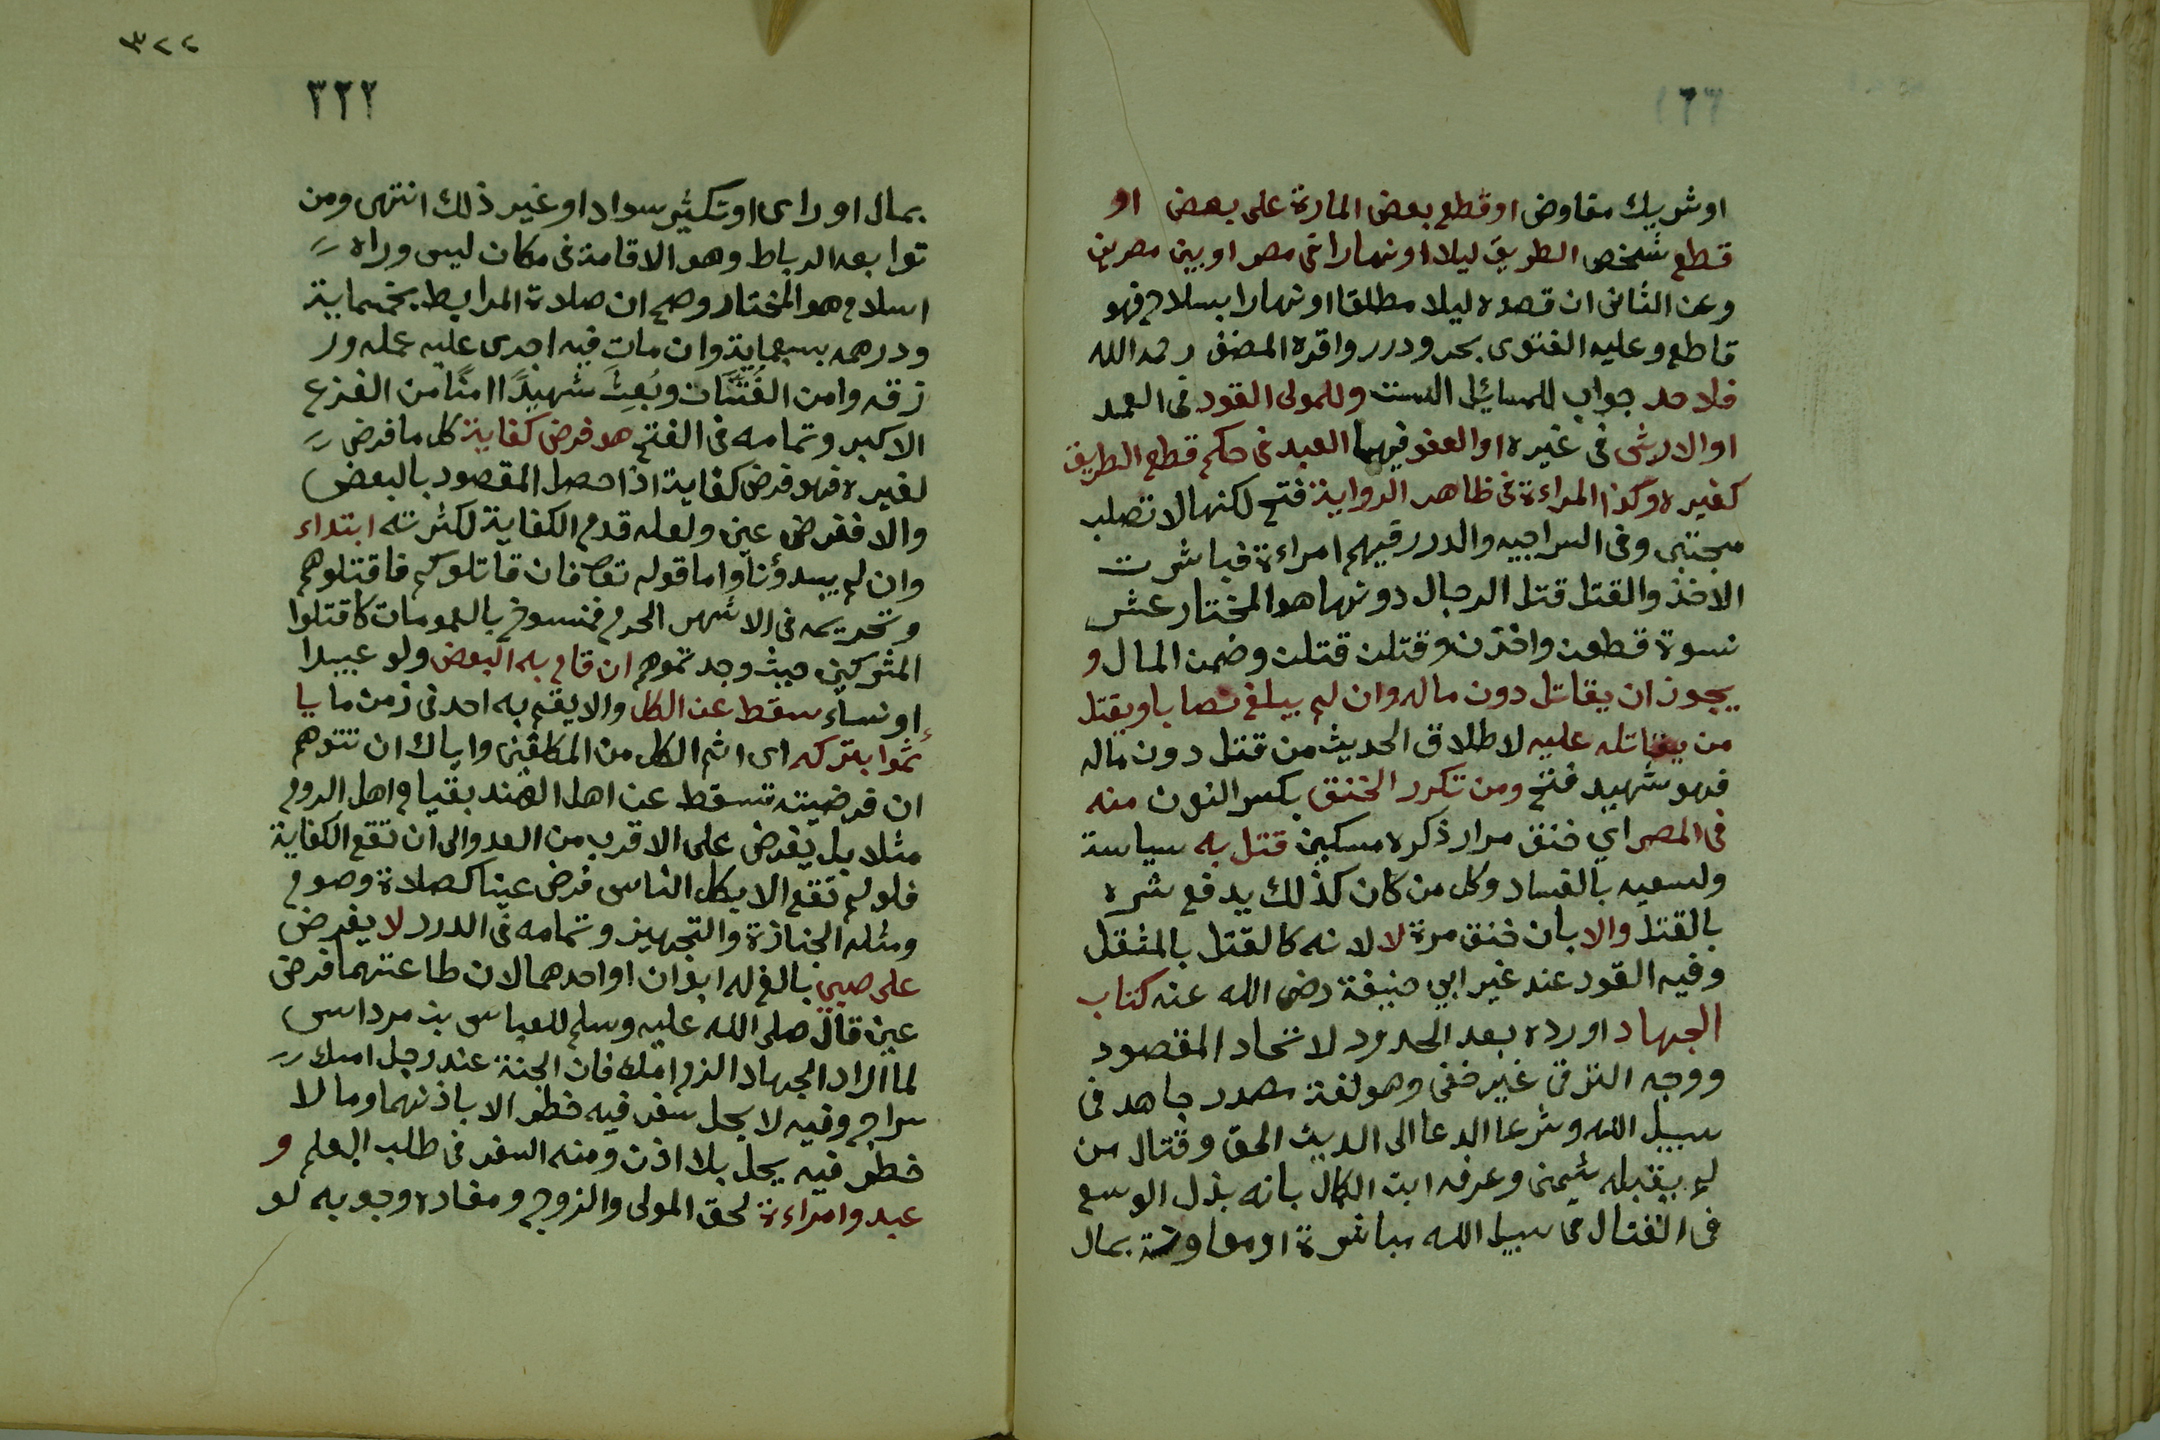 او شريك مفاوض او قطع بعض المارة على بعض او
قطع شخص الطريق ليلا او نهارا في مصر او بين مصرين
وعن الثاني ان قصده ليلا مطلقا او نهارا بسلاح فهو
قاطع وعليه الفتوى بحر ودرر واقره المصنف رحمه الله
فلا حد جواب للمسائل الست وللمولى القود في العمد
او الارش في غيره او العفو فيهما العبد في حكم قطع الطريق
كغيره وكذا المراءة في ظاهر الرواية فتح لكنها لا تصلب
مجتبى وفي السراجيه والدرر فيهم امراءة فباشرت
الاخذ والقتل قتل الرجال دونها هو المختار عشر
نسوة قطعن واخذن وقتلن قتلن وضمن المال و
يجوز ان يقاتل دون ماله وان لم يبلغ نصابا ويقتل
من يقاتله عليه لاطلاق الحديث من قتل دون ماله
فهو شهيد فتح ومن تكرر الخنق بكسر النون منه
في المصر اي خنق مرار ذكره مسكين قتل به سياسة
ولسعيه بالفساد وكل من كان كذلك يدفع شره
بالقتل والا بان خنق مرة لا لانه كالقتل بالمثقل
وفيه القود عند غير ابي حنيفة رضى الله عنه كتاب
الجهاد اورده بعد الحدود لاتحاد المقصود
ووجه الترقى غير خفى وهو لغة مصدر جاهد في
سبيل الله وشرعا الدعا الى الدين الحق وقتال من
لم يقبله شمنى وعرفه ابن الكمال بانه بذل الوسع
في القتال في سبيل الله مباشرة او معاونة بمال
٣٢٢
٣٢٢
بمال او راى او تكثير سواد او غير ذلك انتهى ومن
توابعه الرباط وهو الاقامة في مكان ليس وراه
اسلام هو المختار وصح ان صلاة المرابط بخمسماية
ودرهمه بسبعماية وان مات فيه اجرى عليه عمله ور
زقه وامن الفُتَّنَان وبُعِثَ شهيدًا امنًا من الفزع
الاكبر وتمامه في الفتح هو فرض كفاية كل ما فرض
لغيره فهو فرض كفاية اذا حصل المقصود بالبعض
والا ففرض عين ولعله قدم الكفاية لكثرته ابتداء
وان لم يبدؤنا واما قوله تعا فان قاتلوكم فاقتلوهم
وتحريمه في الاشهر الحرم فمنسوخ بالعمومات كاقتلوا
المشركين حيث وجدتموهم ان قام به البعض ولو عبيدا
او نساء سقط عن الكل والا يقم به احد في زمن ما يا
ثموا بتركه اى اثم الكل من المكلفين واياك ان تتوهم
ان فرضيته تسقط عن اهل الهند بقيام اهل الروم
مثلا بل يفرض على الاقرب من العدو الى ان تقع الكفاية
فلو لم تقع الا بكل الناس فرض عينا كصلاة وصوم
ومثله الجنازة والتجهيز وتمامه في الدرر لا يفرض
على صبي بالغ له ابوان او احدهما لان طاعتهما فرض
عين قال صلى الله عليه وسلم للعباس بن مرداس
لما اراد الجهاد الزم امك فان الجنة عند رجل امك
سراج وفيه لا يحل سفر فيه خطر الا باذنهما وما لا
خطر فيه يحل بلا اذن ومنه السفر في طلب العلم و
عبد وامراءة لحق المولى والزوج ومفاده وجوبه لو